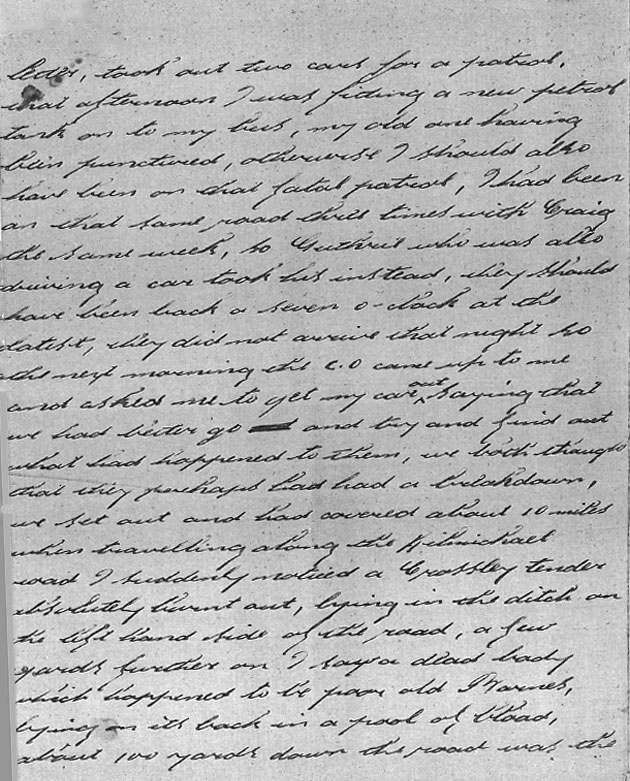 later, took out two cars for a patrol,
that afternoon I was fitting a new petrol
tank on to my bus, my old one having
been punctured, otherwise I should also
have been on that fatal patrol, I had been
on that same road three times with Craig
the same week, so Guthrie who was also
driving a car took his instead, they should
have been back a seven o-clock at the
latest, they did not arrive that night so
the next morning the C.O came up to me
and asked me to get my car out saying that
we had better go and try and find out
what had happened to them, we both thought
that they perhaps had had a breakdown,
we set out and had covered about 10 miles
when travelling along the Kilmichael
road I suddenly noticed a Crossley tender
absolutely burnt out, lying in the ditch on
the left hand side of the road, a few
yards further on I saw a dead body
which happened to be poor old Barnes,
lying on its back in a pool of blood,
about 100 yards down the road was the